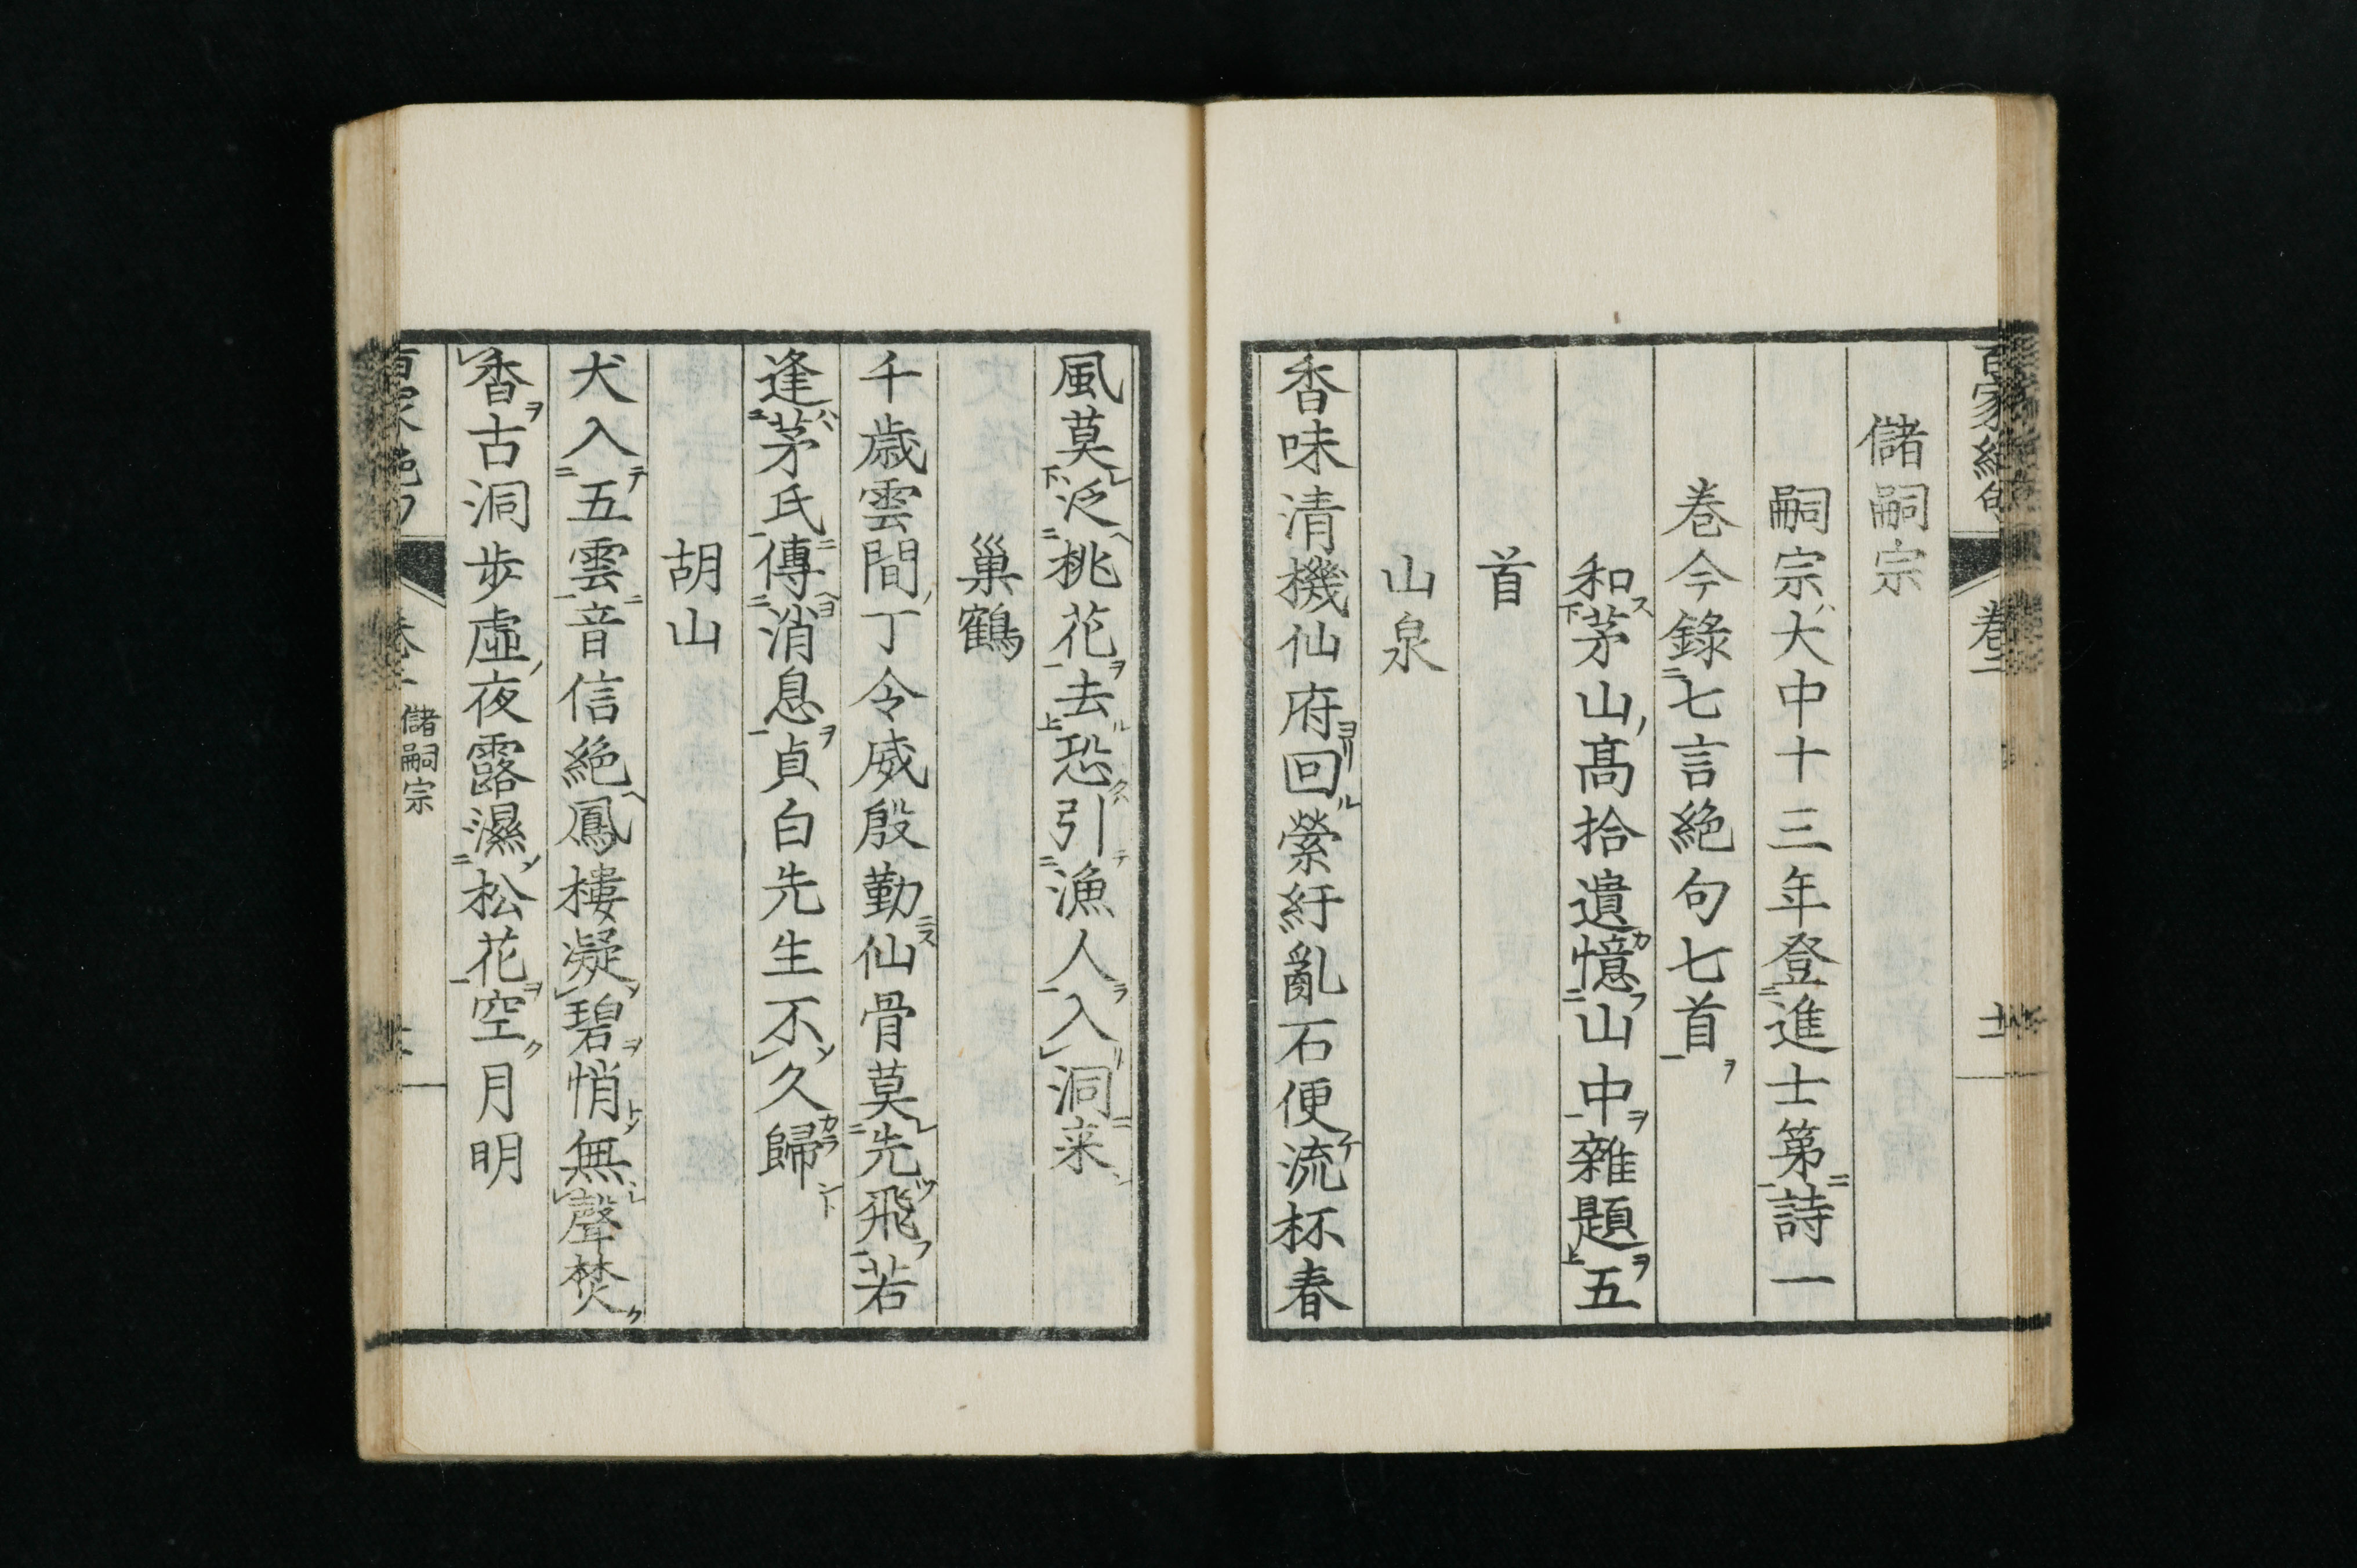 儲嗣宗
嗣宗大中十三年登進士第詩一
卷今錄七言絕句七首
和茅山髙拾遺憶山中雜題五
首
山泉
香味清機仙府回縈紆亂石便流杯春
風莫泛桃花去恐引漁人入洞来
巢鶴
千歳雲間丁令威殷勤仙骨莫先飛若
逢茅氏傳消息貞白先生不久歸
胡山
犬入五雲音信絕鳳樓凝碧悄無聲焚
香古洞步虛夜露濕松花空月明
儲嗣宗